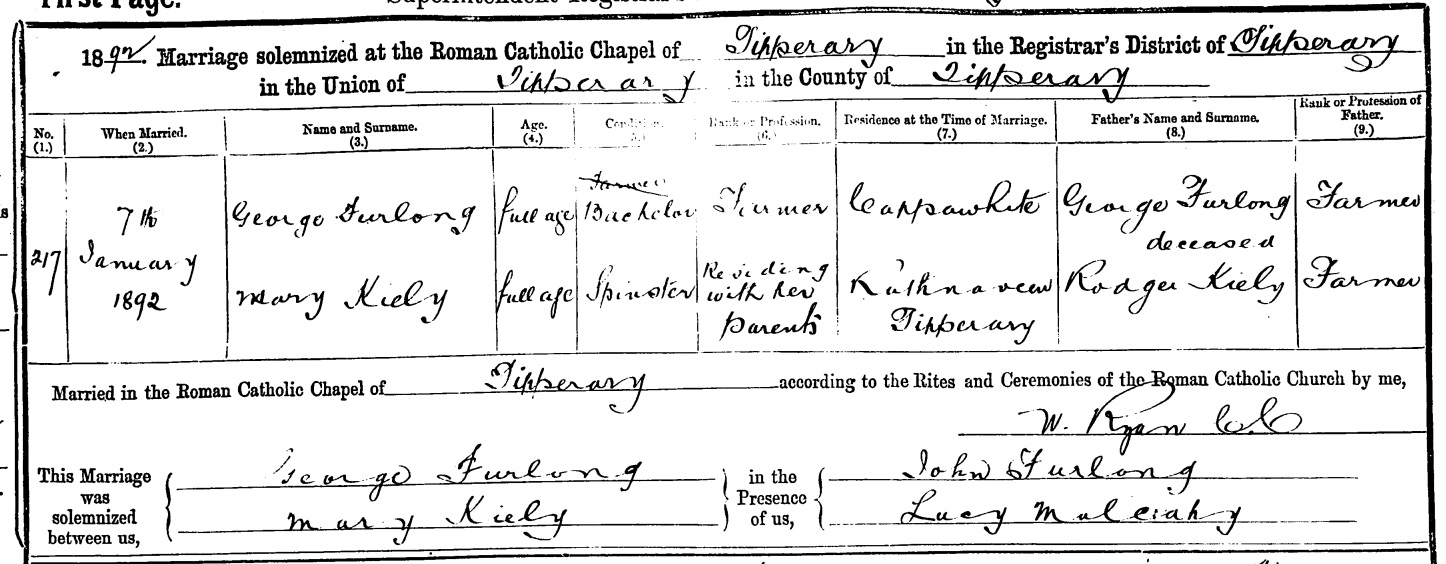 First Page.
1892. Marriage solemnized at the Roman Catholic Chapel of Tipperary in the Registrar's District of Tipperary
in the Union of Tipperary in the County of Tipperary
No. (1.) When Married. (2.) Name and Surname. (3.) Age. (4.) Condition. (5.) Rank or Profession. (6.) Residence at the Time of Marriage. (7.) Father's Name and Surname. (8.) Rank or Profession of Father. (9.)
217 7th January 1892
George Furlong full age Farmer Bachelor Farmer Cappawhite George Furlong deceased Farmer
Mary Kiely full age Spinster Residing with her parents Rathnaveen Tipperary Rodger Kiely Farmer
Married in the Roman Catholic Chapel of Tipperary according to the Rites and Ceremonies of the Roman Catholic Church by me,
W. Ryan C.C
This Marriage was solemnized between us, George Furlong
Mary Kiely
in the Presence of us, John Furlong
Lucy Mulciahy